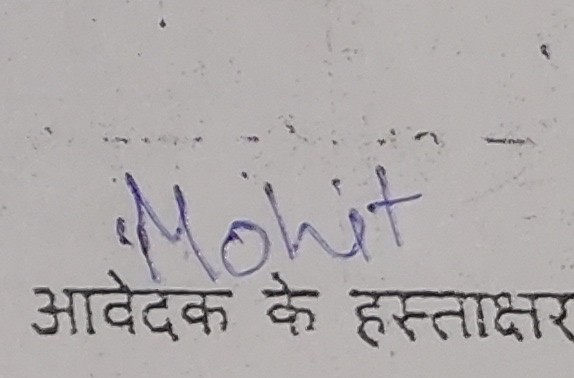 Mohit
आवेदक के हस्ताक्षर